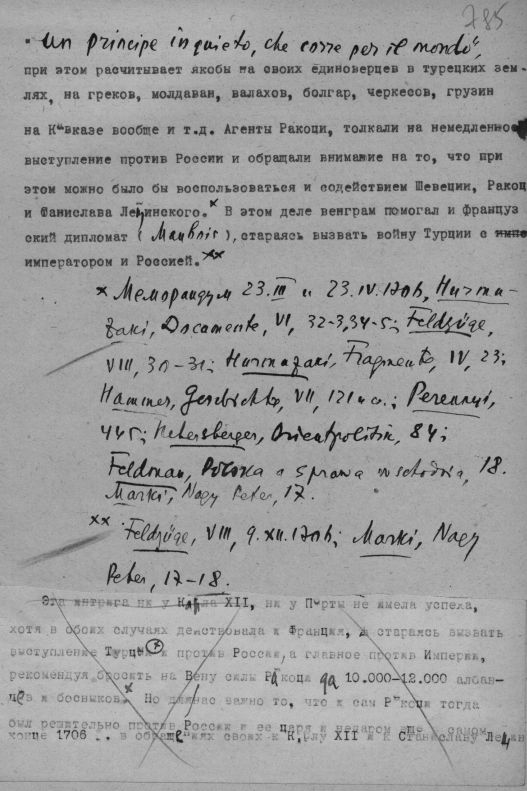 785
"un principe inquieto, che corre per il mondo",
при этом расчитывает якобы на своих единоверцев в турецких зем-
лях, на греков, молдаван, валахов, болгар, черкесов, грузин
на Кавказе вообще и т.д. Агенты Ракоци, толкали на немедленное
выступление против России и обращали внимание на то, что при
этом можно было бы воспользоваться и содействием Швеции, Ракоц
и Станислава Лещинского.* В этом деле венграм помогал и француз
ский дипломат ( ), стараясь вызвать войну Турции с импе
императором и Россией.**
* Меморандум 23.III и 23.IV.1706, Hurmu-
zaki, Documente, VI, 32-3,34-5; Feldzüge,
VIII, 30-31; Hurmuzaki, Fragmente, IV, 23;
Hammer, Geschichte, VII, 121 и сл.; Perennyi,
445; Uebersberger, Orientpolitik, 84;
Feldman, Polska a sprawa wschodnia, 18.
Marki, Nagy Peter, 17.
** Feldzüge, VIII, 9.XII.1706; Marki, Nagy
Peter, 17-18.
Эта интрига ни у Карла XII, ни у Порты не имела успеха,
хотя в обоих случаях действовала и Франция, стараясь вызвать
выступление Турции и против России, а главное против Империи,
рекомендуя бросить на Вену силы Ракоци да 10.000-12.000 албан-
цев и босняков.* Но для нас важно то, что и сам Ракоци тогда
был решительно против России и ее царя и недаром еще самом
конце 1706 .. в обращениях своих к Карлу XII и к Станиславу Лещин